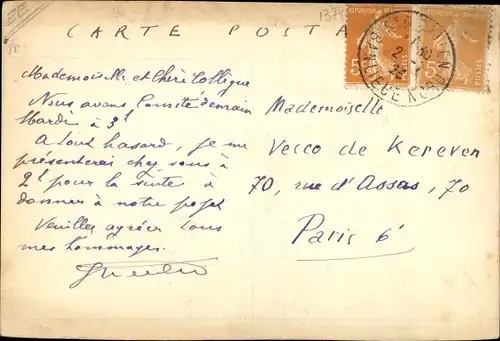 CARTE POSTA
Mademoiselle et chère Collègue
Nous avons Comité demain
Mardi à 3h
A tout hasard, je me
présenterai chez vous à
2h pour la suite à
donner à notre projet
Veuillez agréer tous
mes hommages.
Mademoiselle
Vecco de Kereven
70, rue d'Assas, 70
Paris 6e